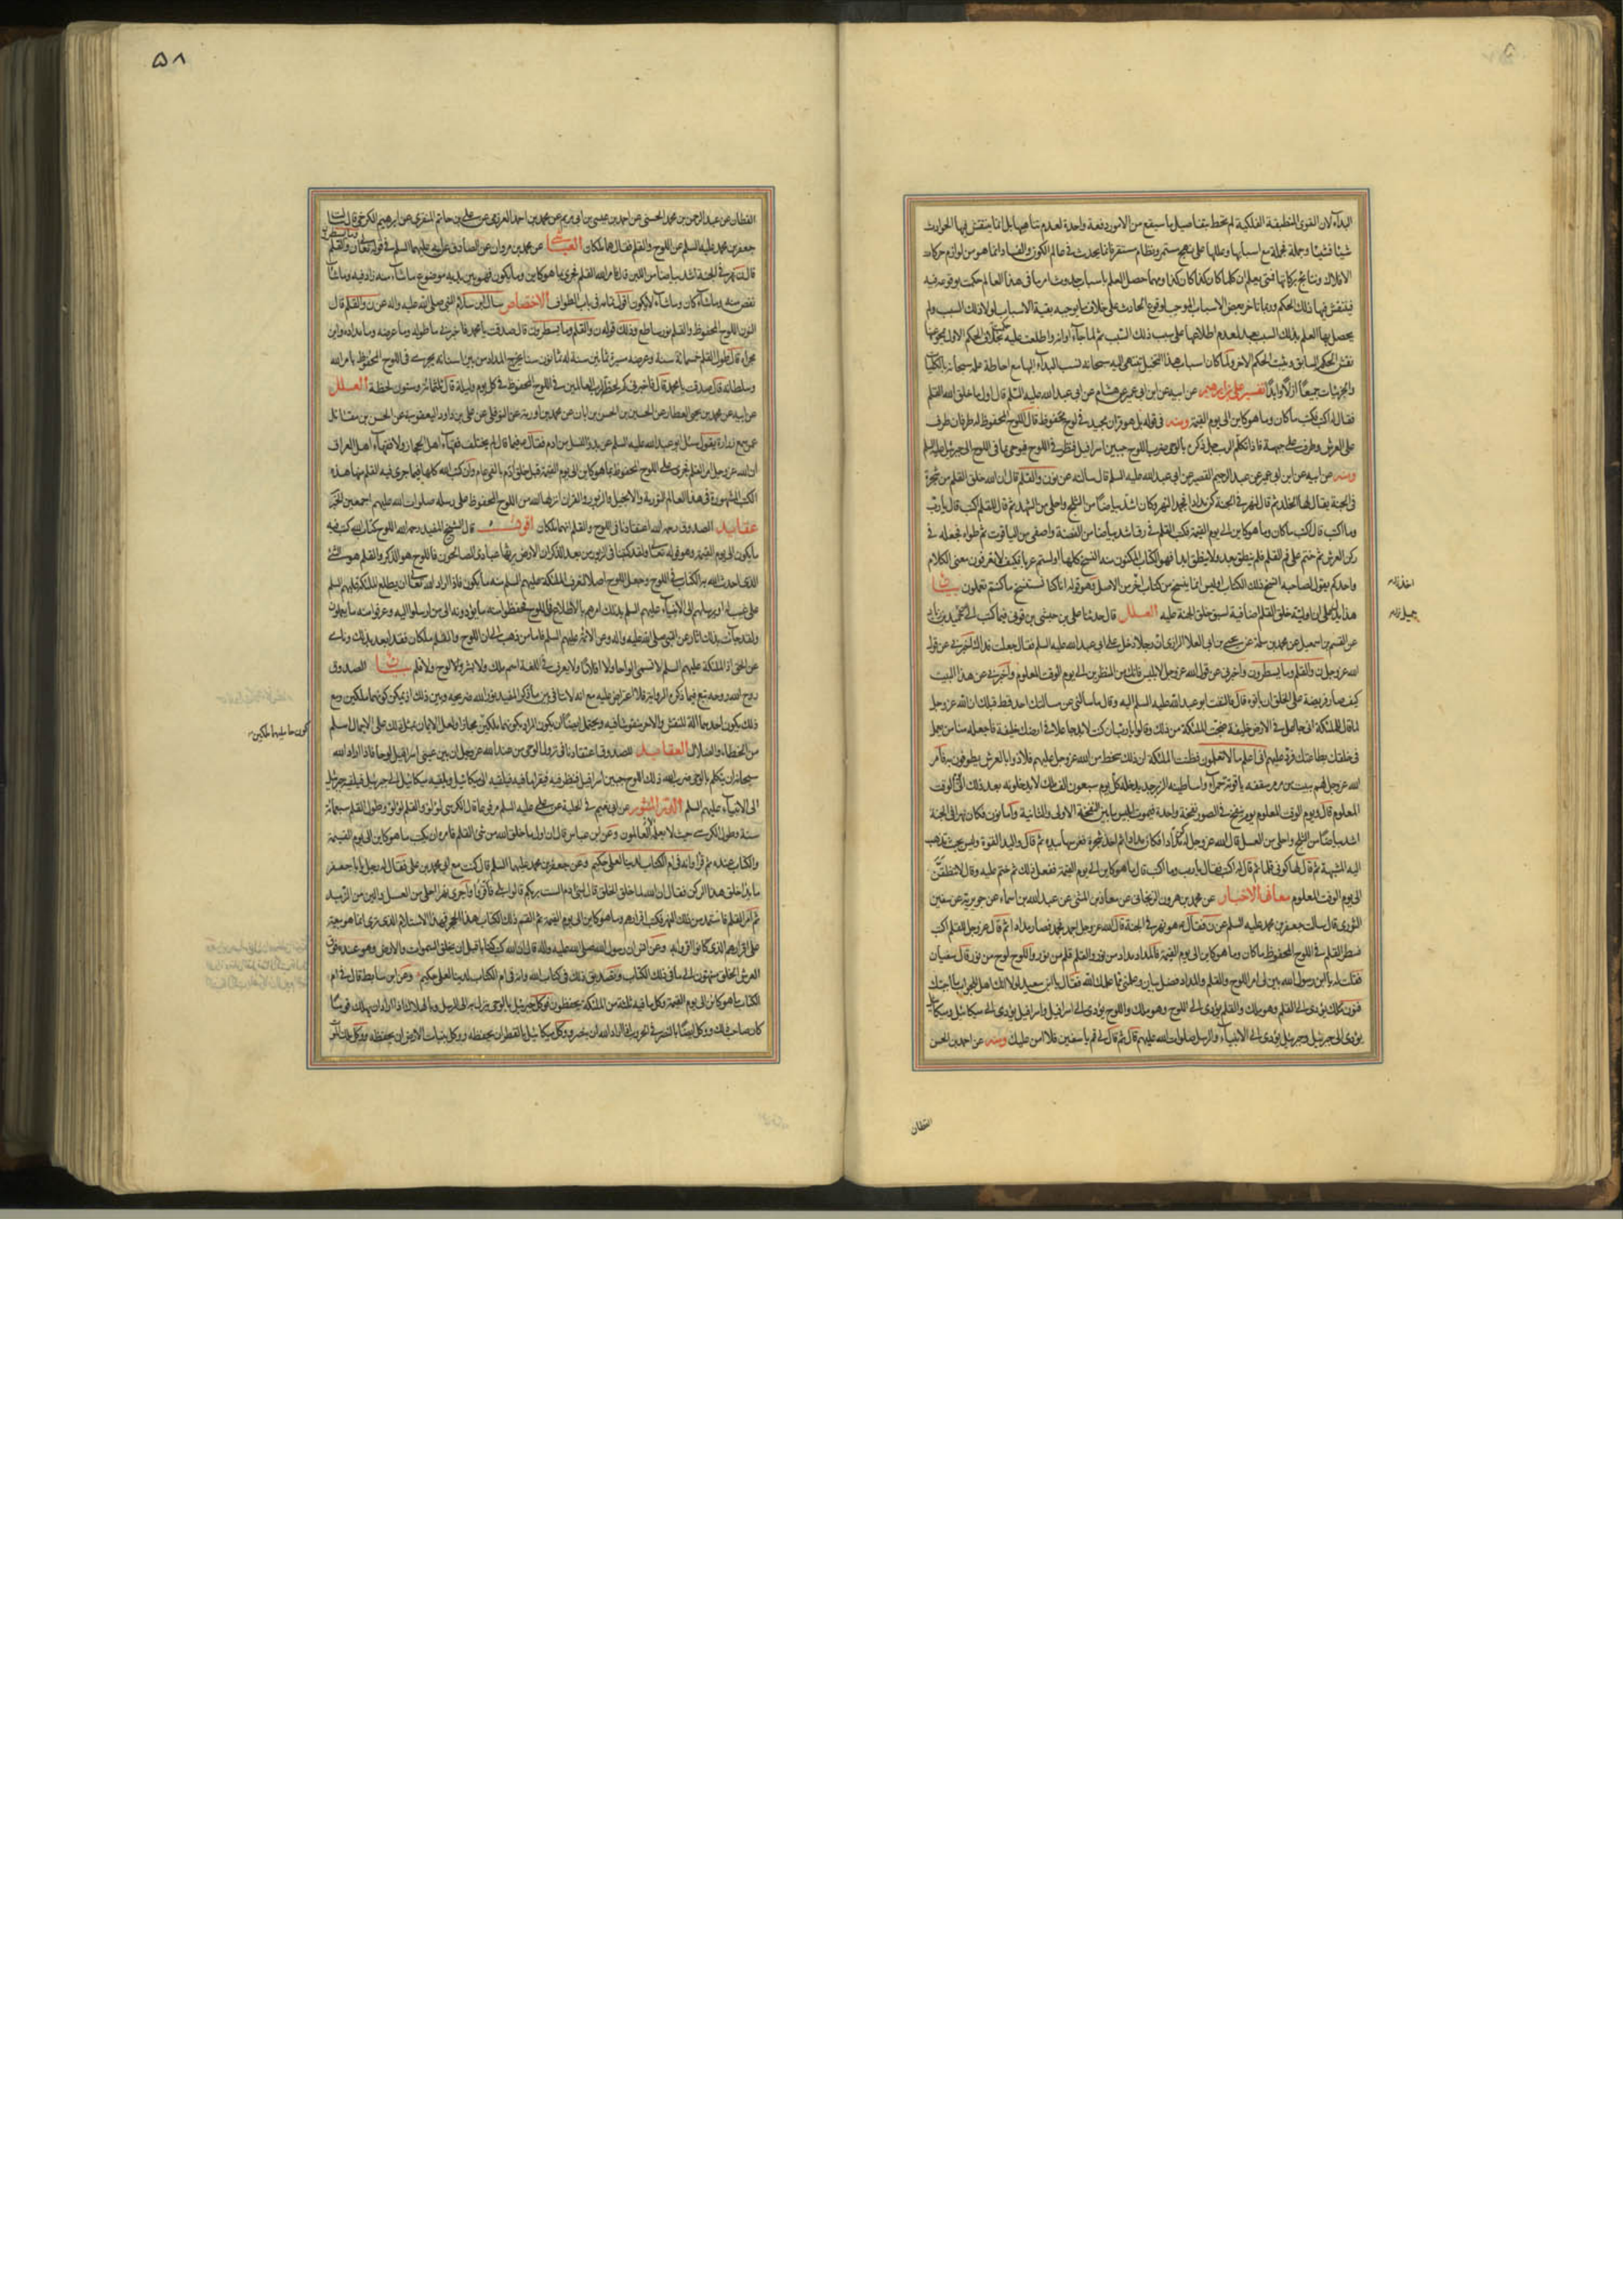 البداء لان القوى المنطبعة الفلكية لم تحط بتفاصيل ما سيقع من الامور دفعة واحدة لعدم تناهيها بل انما ينتقش فيها الحوادث
شيئا فشيئا وجملة فجملة مع اسبابها وعللها على نهج مستمر ونظام مستقر فانما يحدث فى عالم الكون والفساد انما هو من لوازم حركات
الافلاك ونتايج بركاتها فمتى يعلم ان كلما كان كذا كان كذا ومهما حصل العلم باسباب حدوث امر ما فى هذا العالم حكمت بوقوعه فيه
فينتقش فيها ذلك الحكم وربما تاخر بعض الاسباب الموجب لوقوع الحادث على خلاف ما يوجبه بقية الاسباب لولا ذلك السبب ولم
يحصل لها العلم بذلك السبب بعد لعدم اطلاعها على سبب ذلك السبب ثم لما جاء اوانه واطلعت عليه حكمت بخلاف الحكم الاول فيمحو عنها
نقش الحكم السابق ويثبت الحكم الاخر
والجزئيات جميعا ازلا وابدا تفسير على بن ابرهيم عن ابيه عن ابن ابى عمير عن هشام عن ابى عبد الله عليه السلم قال اول ما خلق الله القلم
فقال له اكتب فكتب ما كان وما هو كاين الى يوم القيمة ومنه فى قوله بل هو قران مجيد فى لوح محفوظ قال اللوح المحفوظ له طرفان طرف
على العرش وطرف على جبهة اسرافيل فاذا تكلم الرب جل ذكره بالوحى ضرب اللوح جبين اسرافيل فنظر فى اللوح فيوحى بما فى اللوح الى جبرئيل عليه السلم
ومنه عن ابيه عن ابن ابى عمير عن عبد الرحيم القصير عن ابى عبد الله عليه السلم قال سالته عن نون والقلم قال ان الله خلق القلم من شجرة
فى الجنة يقال لها الخلد ثم قال لنهر فى الجنة كن مدادا فجمد النهر وكان اشد بياضا من الثلج واحلى من الشهد ثم قال للقلم اكتب قال يا رب
وما اكتب قال اكتب ما كان وما هو كاين الى يوم القيمة فكتب القلم فى رق اشد بياضا من الفضة واصفى من الياقوت ثم طواه فجعله فى
ركن العرش ثم ختم على فم القلم فلم ينطق بعد ولا ينطق ابدا فهو الكتاب المكنون منه النسخ كلها اولستم عربا فكيف لا تعرفون معنى الكلام
واحدكم يقول لصاحبه انسخ ذلك الكتاب اوليس انما ينسخ من كتاب اخر من الاصل وهو قوله انا كنا نستنسخ ما كنتم تعملون بيان
هذا يدل على ان اولية خلق القلم اضافية لسبق خلق الجنة عليه العلل قال حدثنا على بن حبشى بن قونى فيما كتب الى عن حميد بن زياد
عن القسم بن اسمعيل عن محمد بن سلمة عن يحيى بن ابى العلا الرازى ان رجلا دخل على ابى عبد الله عليه السلم فقال جعلت فداك اخبرنى عن قول
الله عز وجل ن والقلم وما يسطرون واخبرنى عن قول الله عز وجل لابليس فانك من المنظرين الى يوم الوقت المعلوم واخبرنى عن هذا البيت
كيف صار فريضة على الخلق ان ياتوه قال فالتفت ابو عبد الله عليه السلم اليه وقال ما سالنى عن مسالتك احد قط قبلك ان الله عز وجل
لما قال للملئكة انى جاعل فى الارض خليفة ضجت الملئكة من ذلك وقالوا يا رب ان كنت لا بد جاعلا فى ارضك خليفة فاجعله منا من يعمل
فى خلقك بطاعتك فرد عليهم انى اعلم ما لا تعلمون فظنت الملئكة ان ذلك سخط من الله عز وجل عليهم فلاذوا بالعرش يطوفون به فامر
الله عز وجل لهم ببيت من مرمر سقفه ياقوتة حمراء واساطينه الزبرجد يدخله كل يوم سبعون الف ملك لا يدخلونه بعد ذلك الى يوم الوقت
المعلوم قال ويوم الوقت المعلوم يوم ينفخ فى الصور نفخة واحدة فيموت ابليس ما بين النفخة الاولى والثانية واما نون فكان نهرا فى الجنة
اشد بياضا من الثلج واحلى من العسل قال الله عز وجل له كن مدادا فكان مدادا ثم اخذ شجرة فغرسها بيده ثم قال واليد القوة وليس بحيث تذهب
اليه المشبهة ثم قال لها كونى قلما ثم قال له اكتب فقال يا رب وما اكتب قال ما هو كاين الى يوم القيمة ففعل ذلك ثم ختم عليه وقال لا تنطقن
الى يوم الوقت المعلوم معانى الاخبار عن محمد بن هرون الزنجانى عن معاذ بن المثنى عن عبد الله بن اسماء عن جويرية عن سفين
الثورى قال سالت جعفر بن محمد عليه السلم عن ن فقال هو نهر فى الجنة قال الله عز وجل اجمد فجمد فصار مدادا ثم قال عز وجل للقلم اكتب
فسطر القلم فى اللوح المحفوظ ما كان وما هو كاين الى يوم القيمة فالمداد مداد من نور والقلم قلم من نور واللوح لوح من نور قال سفيان
فقلت له يا ابن رسول الله بين لى امر اللوح والقلم والمداد فضل بيان وعلمنى مما علمك الله فقال يا ابن سعيد لولا انك اهل للجواب ما اجبتك
فنون ملك يؤدى الى القلم وهو ملك والقلم يؤدى الى اللوح وهو ملك واللوح يؤدى الى اسرافيل واسرافيل يؤدى الى ميكائيل وميكائيل
يؤدى الى جبرئيل وجبرئيل يؤدى الى الانبياء والرسل صلوات الله عليهم قال ثم قال لى قم يا سفين فلا امن عليك ومنه عن احمد بن الحسن
القطان
۵۸
القطان عن عبد الرحمن بن محمد الحسنى عن احمد بن عيسى بن ابى مريم عن محمد بن احمد العرزمى عن على بن حاتم المنقرى عن ابرهيم الكرخى قال سالت
جعفر بن محمد عليه السلم عن اللوح والقلم فقال هما ملكان العياشى عن محمد بن مروان عن الصادق عن ابيه عليهما السلم فى قوله تعالى ن والقلم
وما يسطرون
قال ن نهر فى الجنة اشد بياضا من اللبن قال فامر الله القلم فجرى بما هو كاين وما يكون فهو بين يديه موضوع ما شاء منه زاد فيه وما شاء
نقص منه وما شاء كان وما لا يشاء لا يكون اقول تمامه فى باب الطواف الاختصاص سال ابن سلام النبى صلى الله عليه واله عن ن والقلم قال
النون اللوح المحفوظ والقلم نور ساطع وذلك قوله ن والقلم وما يسطرون قال صدقت يا محمد فاخبرنى ما طوله وما عرضه وما مداده واين
مجراه قال طول القلم خمسمائة سنة وعرضه مسيرة ثمانين سنة له ثمانون سنا يخرج المداد من بين اسنانه يجرى فى اللوح المحفوظ بامر الله
وسلطانه قال صدقت يا محمد قال فاخبرنى كم لحظة لرب العالمين فى اللوح المحفوظ فى كل يوم وليلة قال ثلثمائة وستون لحظة العلل
عن ابيه عن محمد بن يحيى العطار عن الحسين بن الحسن بن ابان عن محمد بن اورمة عن النوفلى عن على بن داود اليعقوبى عن الحسن بن مقاتل
عمن سمع زرارة يقول سئل ابو عبد الله عليه السلم عن بدو النسل من ادم فقال فيما قال لم يختلف فقهاء اهل الحجاز ولا فقهاء اهل العراق
ان الله عز وجل امر القلم فجرى على اللوح المحفوظ بما هو كاين الى يوم القيمة قبل خلق ادم بالفى عام وان كتب الله كلها فيما جرى فيه القلم منها هذه
الكتب المشهورة فى هذا العالم التورية والانجيل والزبور والفرقان انزلها الله من اللوح المحفوظ على رسله صلوات الله عليهم اجمعين الخبر
عقايد الصدوق رحمه الله اعتقادنا فى اللوح والقلم انهما ملكان اقول قال الشيخ المفيد رحمه الله اللوح كتاب الله كتب فيه
ما يكون الى يوم القيمة وهو قوله تعالى ولقد كتبنا فى الزبور من بعد الذكر ان الارض يرثها عبادى الصالحون فاللوح هو الذكر والقلم هو الشىء
الذى احدث الله به الكتاب فى اللوح وجعل اللوح اصلا لتعرف الملئكة عليهم السلم منه ما يكون فاذا اراد الله تعالى ان يطلع الملئكة عليهم السلم
على غيب له او يرسلهم الى الانبياء عليهم السلم بذلك امرهم بالاطلاع فى اللوح فحفظوا منه ما يؤدونه الى من ارسلوا اليه وعرفوا منه ما يعملون
ولقد جاءت بذلك اثار عن النبى صلى الله عليه واله وعن الائمة عليهم السلم فاما من ذهب الى ان اللوح والقلم ملكان فقد ابعد بذلك وناى
عن الحق اذ الملئكة عليهم السلم لا تسمى الواحا ولا اقلاما ولا يعرف فى اللغة اسم ملك ولا بشر ولا لوح ولا قلم بيان الصدوق
روح الله روحه تبع فيما ذكره الرواية فلا اعتراض عليه مع انه لا تنافى بين ما ذكره المفيد نور الله ضريحه وبين ذلك اذ يمكن كونهما ملكين ومع
ذلك يكون احدهما الة النقش والاخر منقوشا فيه ويحتمل ايضا ان يكون المراد بكونهما ملكين مجازا ولعل الايمان بمثل ذلك على الاجمال اسلم
من الخطاء والضلال العقايد للصدوق اعتقادنا فى نزول الوحى من عند الله عز وجل ان بين عينى اسرافيل لوحا فاذا اراد الله
سبحانه ان يتكلم بالوحى ضرب الله ذلك اللوح جبين اسرافيل فينظر فيه فيقرا ما فيه فيلقيه الى ميكائيل ويلقيه ميكائيل الى جبرئيل فيلقيه جبرئيل
الى الانبياء عليهم السلم الدر المنثور عن ابى نعيم فى الحلية عن على عليه السلم مرفوعا قال الكرسى لؤلؤ والقلم لؤلؤ وطول القلم سبعمائة
سنة وطول الكرسى حيث لا يعلمه العالمون وعن ابن عباس قال ان اول ما خلق الله من شىء القلم فامره ان يكتب ما هو كاين الى يوم القيمة
والكتاب عنده ثم قرا وانه فى ام الكتاب لدينا لعلى حكيم وعن جعفر بن محمد عليهما السلم قال كنت مع ابى محمد بن على فقال له رجل يا با جعفر
ما بدو خلق هذا الركن فقال ان الله لما خلق الخلق قال لبنى ادم الست بربكم قالوا بلى فاقروا واجرى نهرا احلى من العسل والين من الزبد
ثم امر القلم فاستمد من ذلك النهر فكتب اقرارهم وما هو كاين الى يوم القيمة ثم القم ذلك الكتاب هذا الحجر فهذا الاستلام الذى ترى انما هو بيعة
على اقرارهم الذى كانوا اقروا به وعن انس ان رسول الله صلى الله عليه واله قال ان الله كتب كتابا قبل ان يخلق السموات والارض وهو عنده فوق
العرش الخلق منتهون الى ما فى ذلك الكتاب وتصديق ذلك فى كتاب الله وانه فى ام الكتاب لدينا لعلى حكيم وعن ابن سابط قال فى ام
الكتاب ما هو كاين الى يوم القيمة وكل ما فيه ثلثة من الملئكة يحفظون فوكل جبرئيل بالوحى ينزل به الى الرسل وبالهلاك اذا اراد ان يهلك قوما
كان صاحب ذلك ووكل ايضا بالنصر فى الحروب اذا اراد الله ان ينصر ووكل ميكائيل بالقطر ان يحفظه ووكل بنبات الارض ان يحفظه ووكل ملك الموت